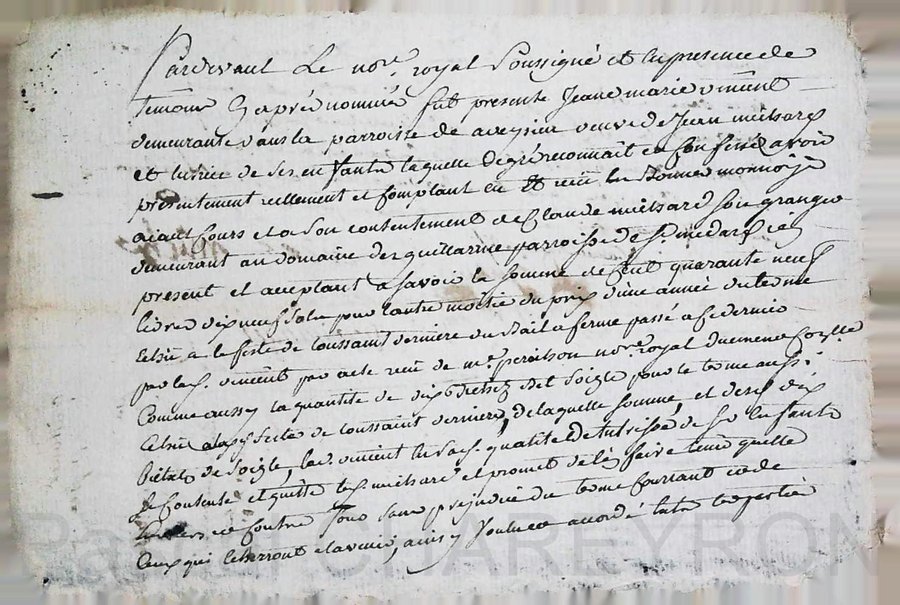 Pardevant Le nore. royal Soussigné et en presence de
temoins Cy aprés nommés fut presente Jeane marie vincent
demeurante dans la parroisse de aveysieu veuve de Jean michard
et tutrice de ses enfants laquelle de gré reconnait et confesse avoir
presentement reellement et comptant eu et recu en bonne monnoye
aiant Cours et a son contentement de Claude michard son granger
demeurant au domaine des guillarme parroisse de st. medard icy
present et acceptant a savoir la somme de Cent quarante neuf
livres dix neuf sols pour l'autre moitié du prix d'une année du terme
Echu a la feste de toussaint derniere du Bail a ferme passé a ce dernier
par lad. vincent par acte recu de me. peraichon nore. royal
Comme aussy la quantité de dix Bichets bled Soigle pour le terme aussi
Echu a lad. feste de toussaint derniere, de laquelle somme, et desd. dix
Bichets de Soigle, lad. vincent en sad. qualité de tutrisse de sd. Enfants
Se Contente et quitte led. michard et promet de l'en faire tenir quitte
Envers et Contre Tous sans prejudice du terme Courant et de
Ceux qui Echerront a l'avenir, ainsy Voulu et accordé entre les parties
Pascal CHAREYRON